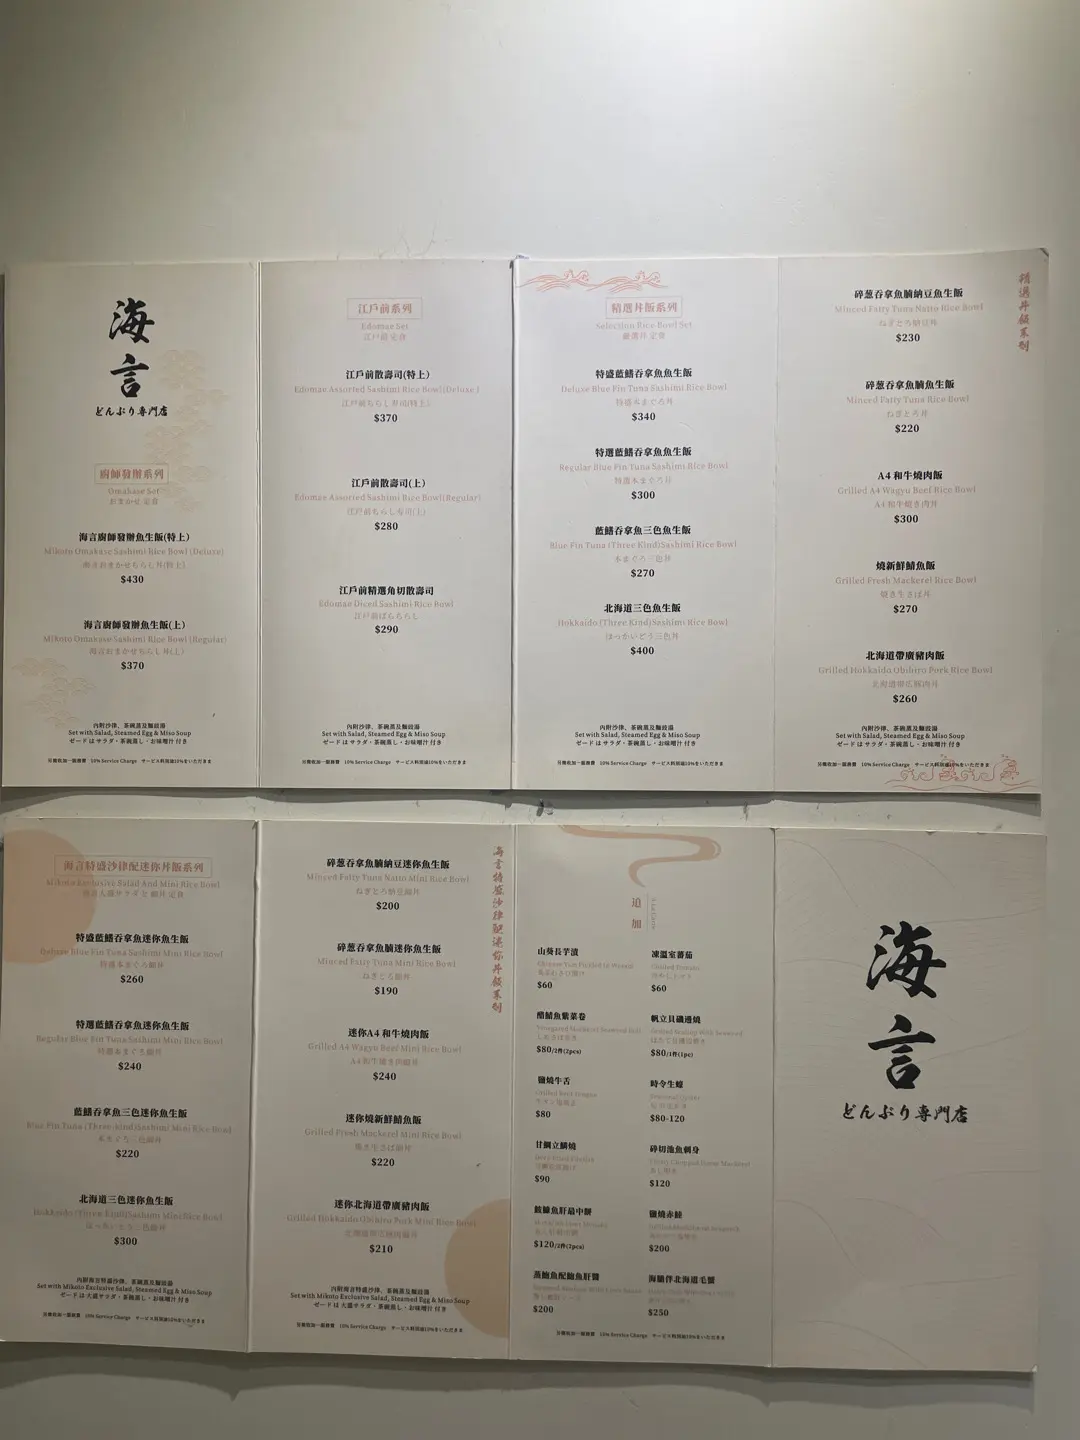 海
言
どんぶり専門店
廚師發辦系列
Omakase Set
おまかせ 定食
海言廚師發辦魚生飯(特上)
Mikoto Omakase Sashimi Rice Bowl (Deluxe)
海言おまかせちらし丼(特上)
$430
海言廚師發辦魚生飯(上)
Mikoto Omakase Sashimi Rice Bowl (Regular)
海言おまかせちらし丼(上)
$370
內附沙律、茶碗蒸及麵豉湯
Set with Salad, Steamed Egg & Miso Soup
ゼードはサラダ・茶碗蒸し・お味噌汁 付き
另需收加一服務費 10% Service Charge サービス料別途10%をいただきま
江戶前系列
Edomae Set
江戸前 定食
江戶前散壽司(特上)
Edomae Assorted Sashimi Rice Bowl (Deluxe)
江戸前ちらし寿司(特上)
$370
江戶前散壽司(上)
Edomae Assorted Sashimi Rice Bowl(Regular)
江戸前ちらし寿司(上)
$280
江戶前精選角切散壽司
Edomae Diced Sashimi Rice Bowl
江戸前ばらちらし
$290
內附沙律、茶碗蒸及麵豉湯
Set with Salad, Steamed Egg & Miso Soup
ゼードはサラダ・茶碗蒸し・お味噌汁 付き
另需收加一服務費 10% Service Charge サービス料別途10%をいただきま
精選丼飯系列
Selection Rice Bowl Set
厳選丼 定食
特盛藍鰭吞拿魚魚生飯
Deluxe Blue Fin Tuna Sashimi Rice Bowl
特盛本まぐろ丼
$340
特選藍鰭吞拿魚魚生飯
Regular Blue Fin Tuna Sashimi Rice Bowl
特選本まぐろ丼
$300
藍鰭吞拿魚三色魚生飯
Blue Fin Tuna (Three Kind)Sashimi Rice Bowl
本まぐろ三色丼
$270
北海道三色魚生飯
Hokkaido (Three Kind)Sashimi Rice Bowl
ほっかいどう三色丼
$400
內附沙律、茶碗蒸及麵豉湯
Set with Salad, Steamed Egg & Miso Soup
ゼードはサラダ・茶碗蒸し・お味噌汁 付き
另需收加一服務費 10% Service Charge サービス料別途10%をいただきま
精選丼飯系列
碎葱吞拿魚腩納豆魚生飯
Minced Fatty Tuna Natto Rice Bowl
ねぎとろ納豆丼
$230
碎葱吞拿魚腩魚生飯
Minced Fatty Tuna Rice Bowl
ねぎとろ丼
$220
A4 和牛燒肉飯
Grilled A4 Wagyu Beef Rice Bowl
A4 和牛焼き肉丼
$300
燒新鮮鯖魚飯
Grilled Fresh Mackerel Rice Bowl
焼き生さば丼
$270
北海道帶廣豬肉飯
Grilled Hokkaido Obihiro Pork Rice Bowl
北海道帯広豚肉丼
$260
內附沙律、茶碗蒸及麵豉湯
Set with Salad, Steamed Egg & Miso Soup
ゼードはサラダ・茶碗蒸し・お味噌汁 付き
另需收加一服務費 10% Service Charge サービス料別途10%をいただきま
海言特盛沙律配迷你丼飯系列
Mikoto Exclusive Salad And Mini Rice Bowl
海言大盛サラダと 細丼 定食
特盛藍鰭吞拿魚迷你魚生飯
Deluxe Blue Fin Tuna Sashimi Mini Rice Bowl
特盛本まぐろ細丼
$260
特選藍鰭吞拿魚迷你魚生飯
Regular Blue Fin Tuna Sashimi Mini Rice Bowl
特選本まぐろ細丼
$240
藍鰭吞拿魚三色迷你魚生飯
Blue Fin Tuna (Three-kind)Sashimi Mini Rice Bowl
本まぐろ三色細丼
$220
北海道三色迷你魚生飯
Hokkaido (Three Kind)Sashimi Mini Rice Bowl
ほっかいどう三色細丼
$300
內附海言特盛沙律、茶碗蒸及麵豉湯
Set with Mikoto Exclusive Salad, Steamed Egg & Miso Soup
ゼードは 大盛サラダ・茶碗蒸し・お味噌汁 付き
另需收加一服務費 10% Service Charge サービス料別途10%をいただきま
海言特盛沙律配迷你丼飯系列
碎葱吞拿魚腩納豆迷你魚生飯
Minced Fatty Tuna Natto Mini Rice Bowl
ねぎとろ納豆細丼
$200
碎葱吞拿魚腩迷你魚生飯
Minced Fatty Tuna Mini Rice Bowl
ねぎとろ細丼
$190
迷你A4 和牛燒肉飯
Grilled A4 Wagyu Beef Mini Rice Bowl
A4 和牛焼き肉細丼
$240
迷你燒新鮮鯖魚飯
Grilled Fresh Mackerel Mini Rice Bowl
焼き生さば細丼
$220
迷你北海道帶廣豬肉飯
Grilled Hokkaido Obihiro Pork Mini Rice Bowl
北海道帯広豚肉細丼
$210
內附海言特盛沙律、茶碗蒸及麵豉湯
Set with Mikoto Exclusive Salad, Steamed Egg & Miso Soup
ゼードは 大盛サラダ・茶碗蒸し・お味噌汁 付き
另需收加一服務費 10% Service Charge サービス料別途10%をいただきま
追加
A La Carte
山葵長芋漬
Chinese Yam Pickled in Wasabi
$60
醋鯖魚紫菜卷
Vinegared Mackerel Seaweed Roll
$80/2件(2pcs)
鹽燒牛舌
Grilled Beef Tongue
$80
甘鯛立鱗燒
$90
鮟鱇魚肝最中餅
$120/2件(2pcs)
蒸鮑魚配鮑魚肝醬
$200
凍溫室蕃茄
Chilled Tomato
冷やしトマト
$60
帆立貝磯邊燒
Grilled Scallop With Seaweed
$80/1件(1pc)
時令生蠔
Seasonal Oyster
$80-120
碎切池魚刺身
$120
鹽燒赤鯥
$200
海膽伴北海道毛蟹
$250
另需收加一服務費 10% Service Charge サービス料別途10%をいただきま
海
言
どんぶり専門店